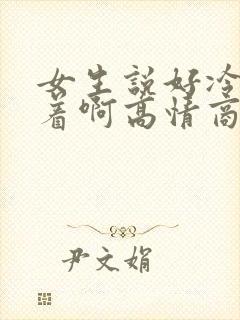 女生說好冷
着啊高情商
尹文娟